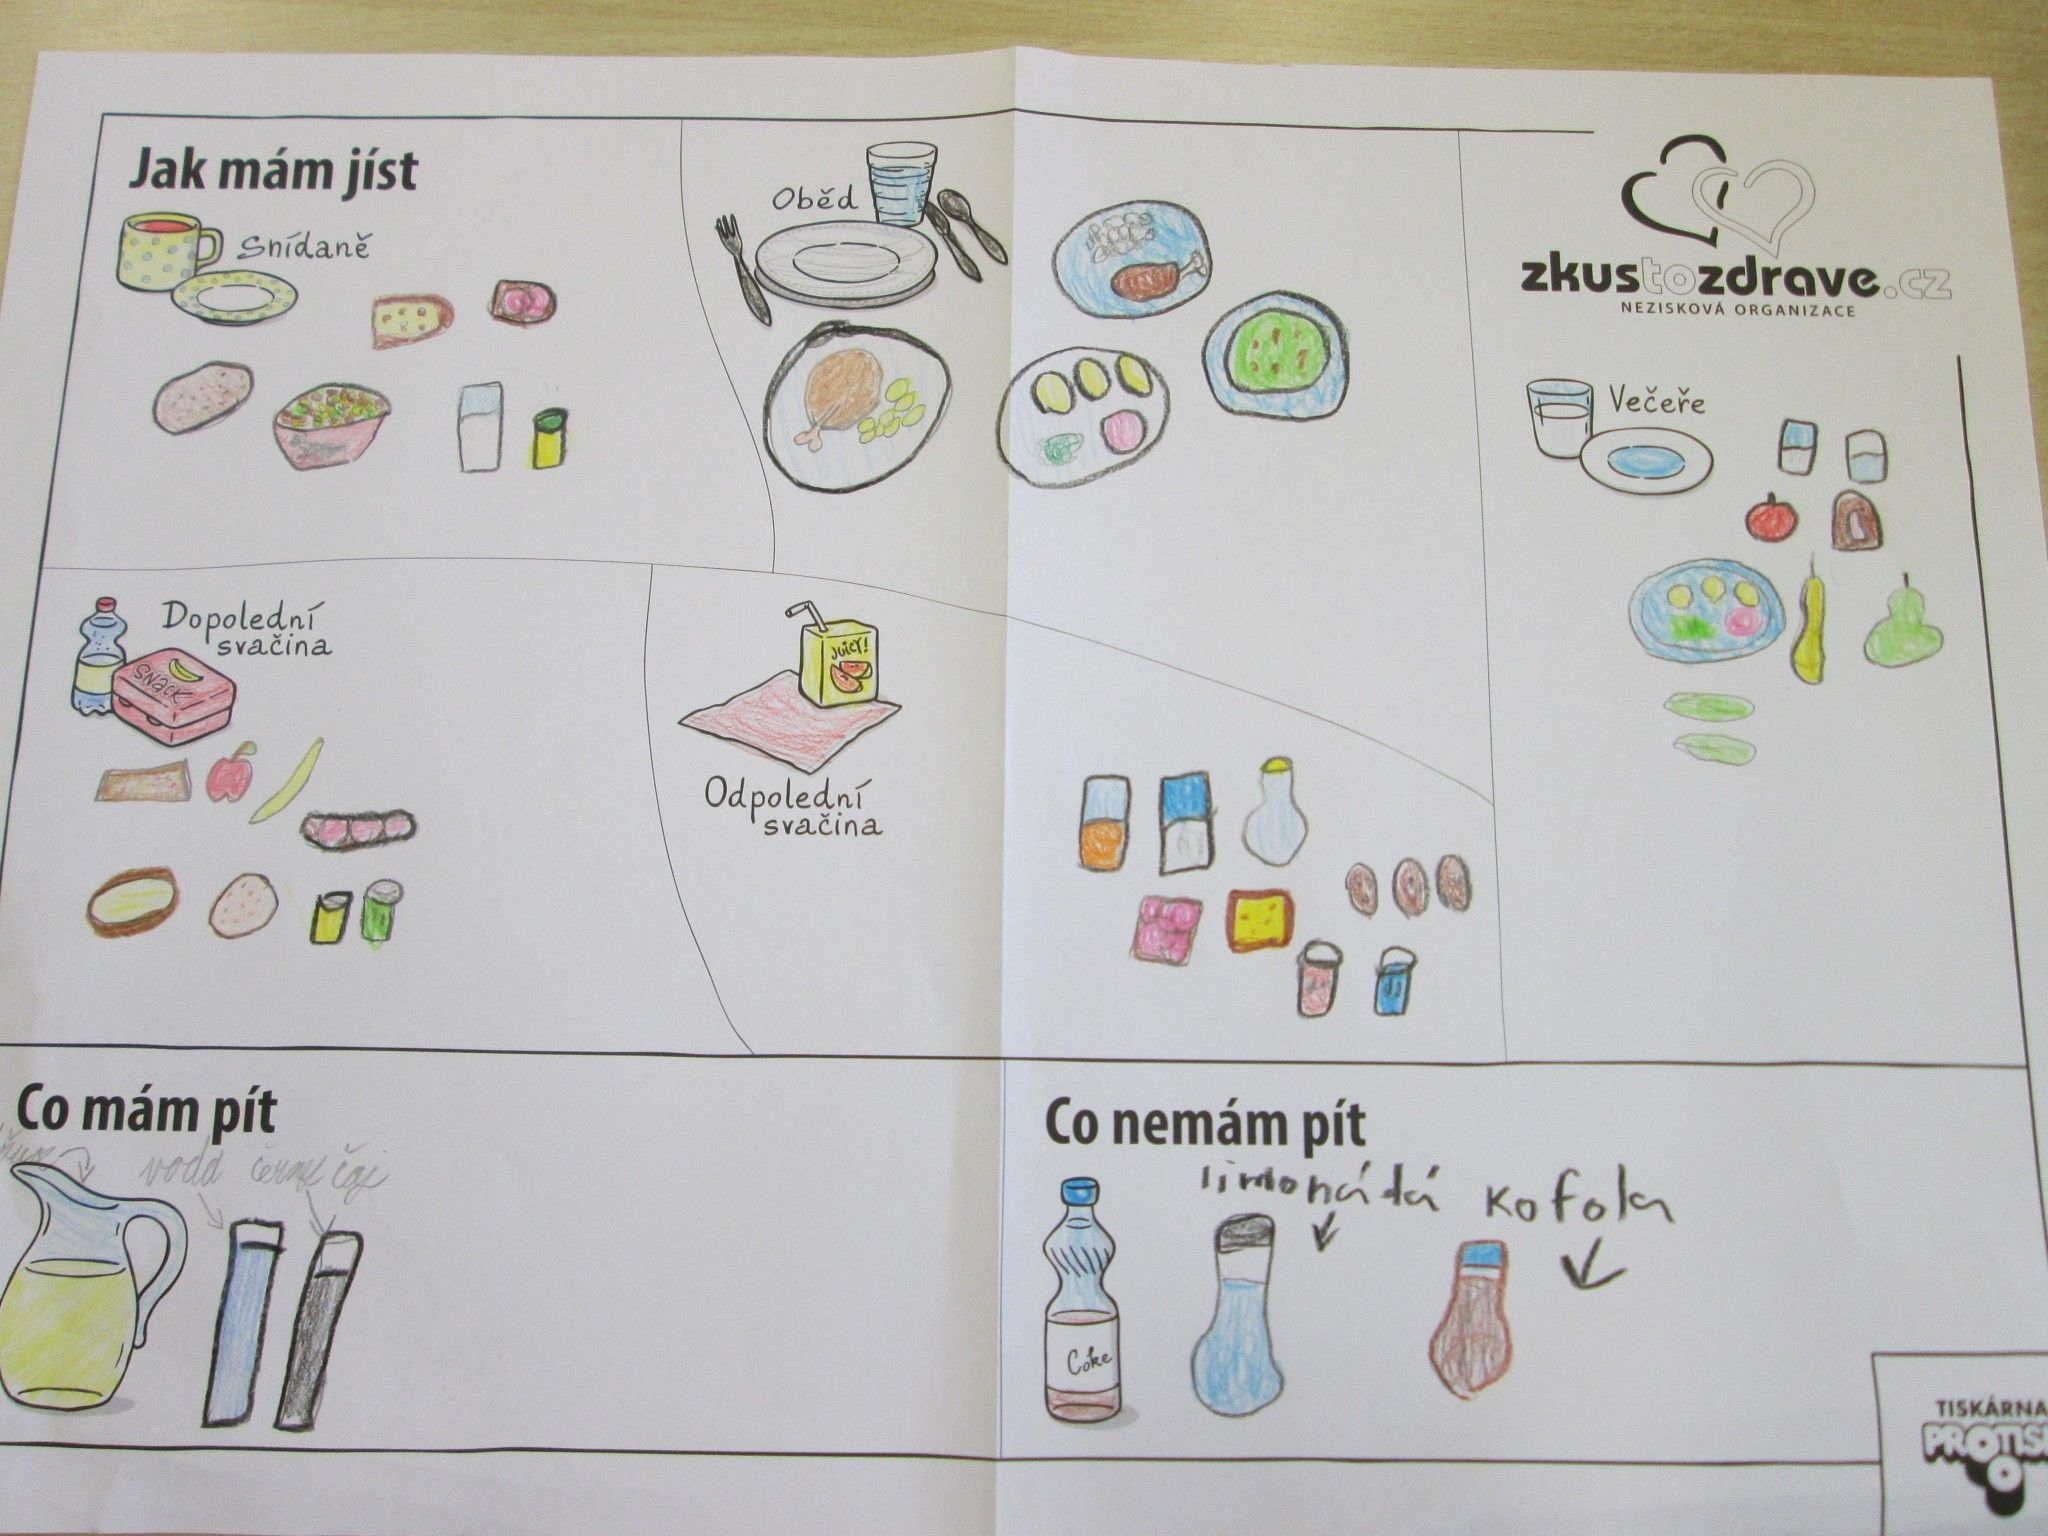 Jak mám jíst
Snídaně
Oběd
zkustozdrave.cz
NEZISKOVÁ ORGANIZACE
Večeře
Dopolední
svačina
SNACK
JUICY!
Odpolední
svačina
Co mám pít
voda černý čaj
Co nemám pít
limonádá
Kofola
Coke
TISKÁRNA
PROTIS